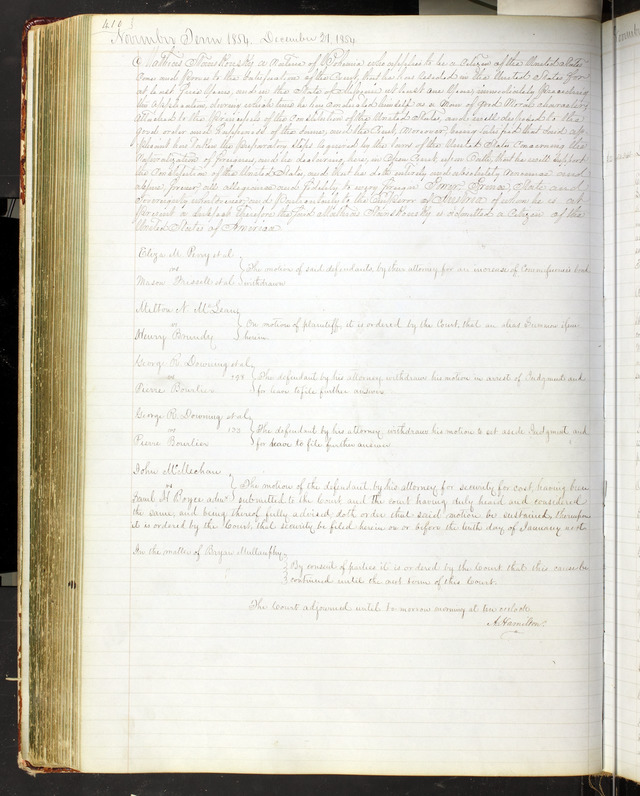 410
November Term 1854. December 21, 1854
Mathias a Native of Bohemia who applies to be a Citizen of the United States
Comes and proves to the Satisfaction of the Court, that he has resided in the United States for
at least five Years, and in the State of Missouri at least one Year, immediately Preceeding
this Application, during which time he has conducted himself as a Man of good Moral character
attached to the principles of the Constitution of the United States, and well disposed to the
good order and happiness of the same, and the Court Moreover, being satisfied that said ap-
plicant has taken the Preparatory Steps required by the laws of the United States Concerning the
Naturalization of foreigners, and he declaring, here, in Open Court upon Oath, that he will Support
the Constitution of the United States, and that he doth entirely and absolutely renounce and
abjure forever all allegiance and fidelity to every foreign Power, Prince, State and
Sovereignty whatsoever, and Particularly to the Emperor of Austria of whom he is at
present a Subject therefore the said Mathias is admitted a Citizen of the
United States of America
Eliza M. Perry et al
vs
The motion of said defendants, by their attorney for an increase of bond
Mason et al withdrawn
Milton N. McLean
vs
On motion of plaintiff, it is ordered by the Court, that an alias Summon issue
Henry herein,
George R. Downing et al
vs 198 The defendant by his attorney withdraws his motion in arrest of Judgment and
Pierre for leave to file further answer
George R. Downing et al
vs The defendant by his attorney withdraws his motion to set aside Judgment and
Pierre for leave to file further answer
John McMechan
vs The motion of the defendant by his attorney for security for cost, having been
H Boyce adm submitted to the Court and the court having duly heard and considered
the same, and being thereof fully advised doth order that said motion be sustained, thereupon
it is ordered by the Court, that security be filed herein on or before the tenth day of January next
In the matter of Bryan Mullanphy
By consent of parties it is ordered by the Court that this cause be
continued until the next term of this Court.
The Court adjourned until to morrow morning at ten oclock
A. Hamilton.